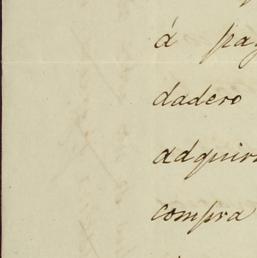 á pag
dadero
adquiri
compra